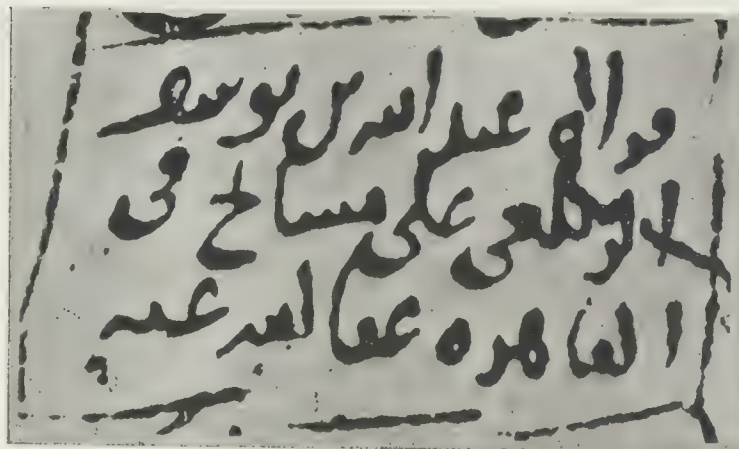 عبد الله بن يوسف
الزيلعي على مشايخ في
القاهرة عفا الله عنه